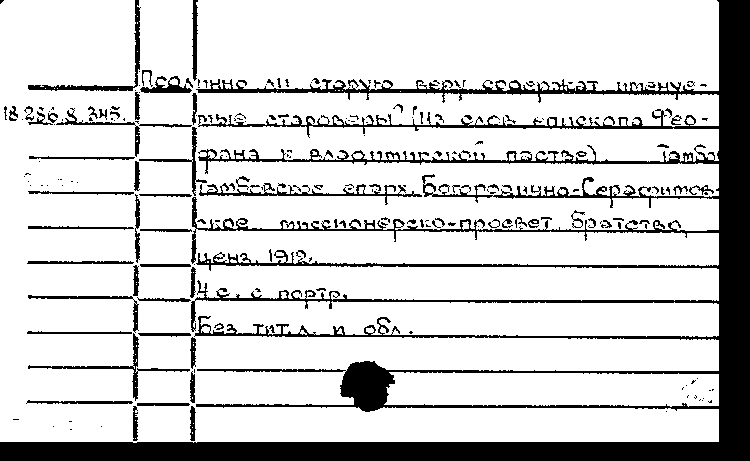 Подлинно ли старую веру содержат именуе-
18.286.8.345. мые староверы? (Из слов епископа Фео-
фана к владимирской пастве). Тамбов
Тамбовское епарх. Богородично-Серафимов-
ское миссионерско-просвет. братство,
ценз. 1912.
4 с. с портр.
Без тит.л. и обл.